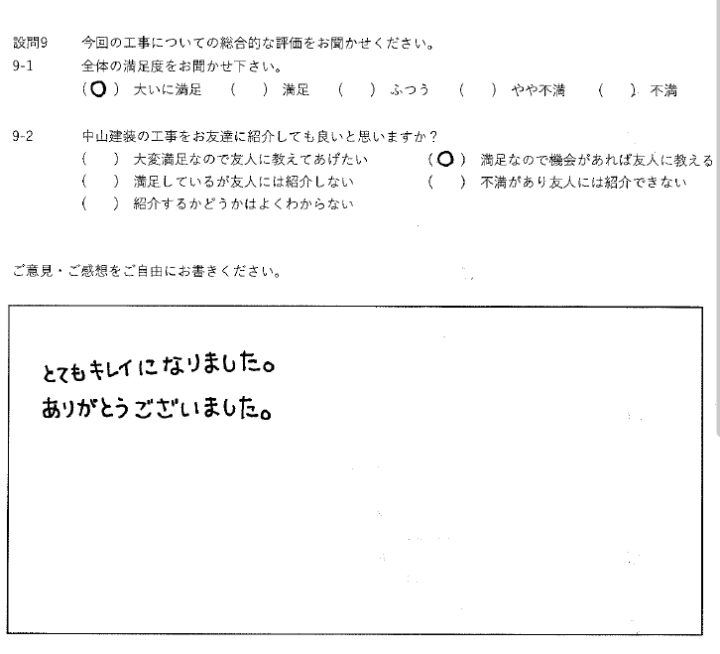 設問9 今回の工事についての総合的な評価をお聞かせください。
9-1 全体の満足度をお聞かせ下さい。
(○) 大いに満足 ( ) 満足 ( ) ふつう ( ) やや不満 ( ) 不満
9-2 中山建装の工事をお友達に紹介しても良いと思いますか？
( ) 大変満足なので友人に教えてあげたい (○) 満足なので機会があれば友人に教える
( ) 満足しているが友人には紹介しない ( ) 不満があり友人には紹介できない
( ) 紹介するかどうかはよくわからない
ご意見・ご感想をご自由にお書きください。
とてもキレイになりました。
ありがとうございました。